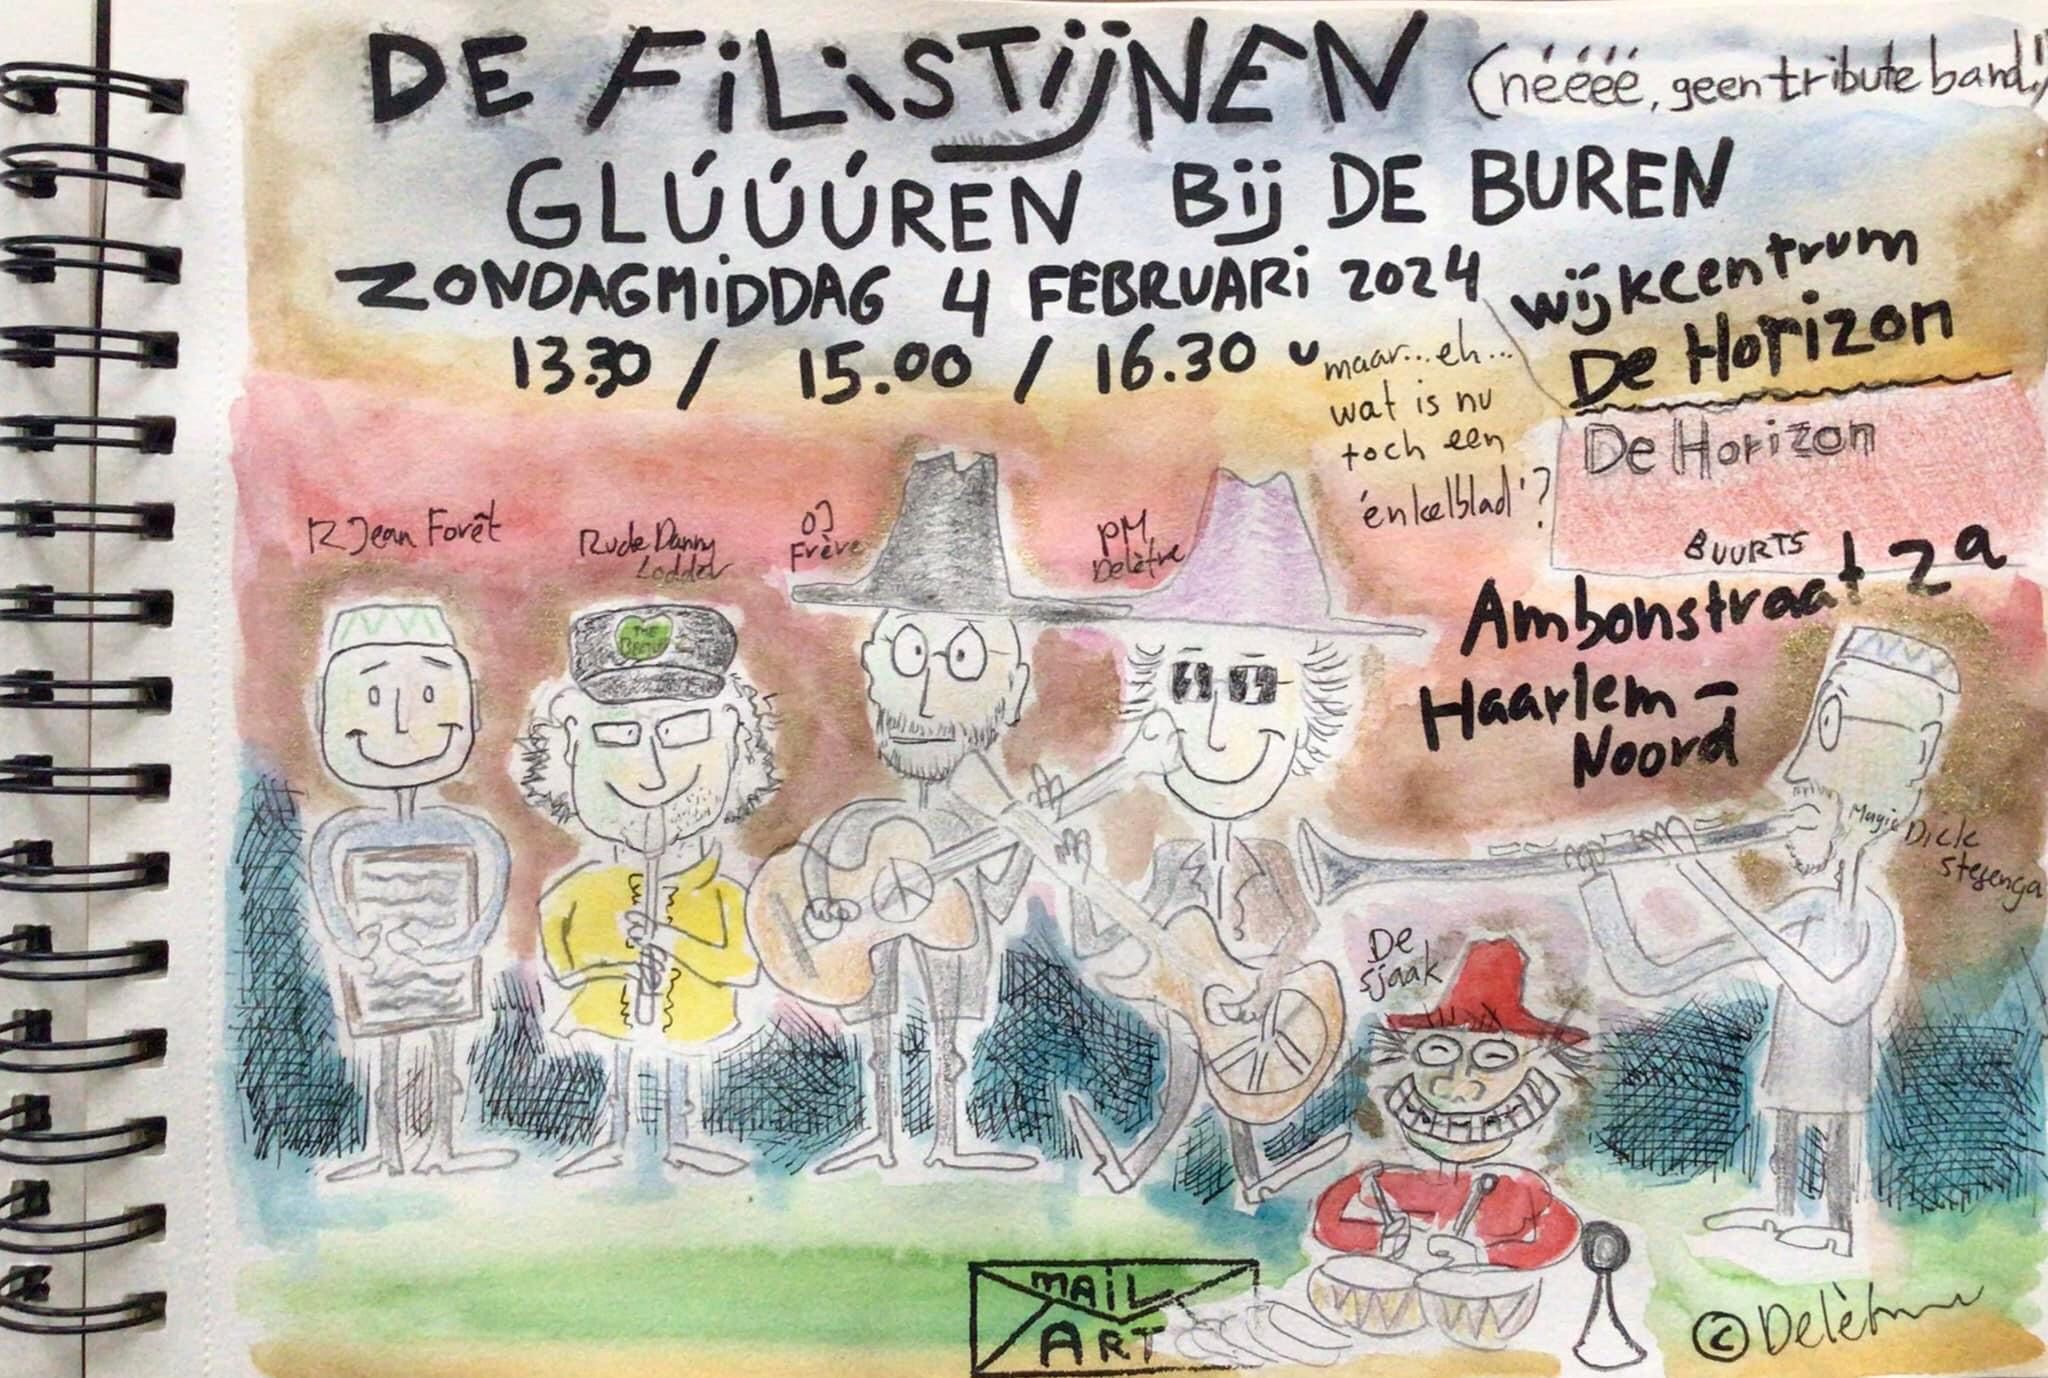 DE FiLiSTijNEN (néééé, geen tribute band!)
GLÚÚÚREN Bij DE BUREN
ZONDAGMiDDAG 4 FEBRUARi 2024
13.30 / 15.00 / 16.30 u
wijkcentrum
De Horizon
maar...eh...
wat is nu
toch een
'enkelblad'?
De Horizon
BUURTS
Ambonstraat 2a
Haarlem-
Noord
R Jean Forêt
Rude Danny
Lodder
OJ
Frère
PM
Delètre
THE
Magic Dick
Stegenga
De
Sjaak
MAiL
ART
© Delètre